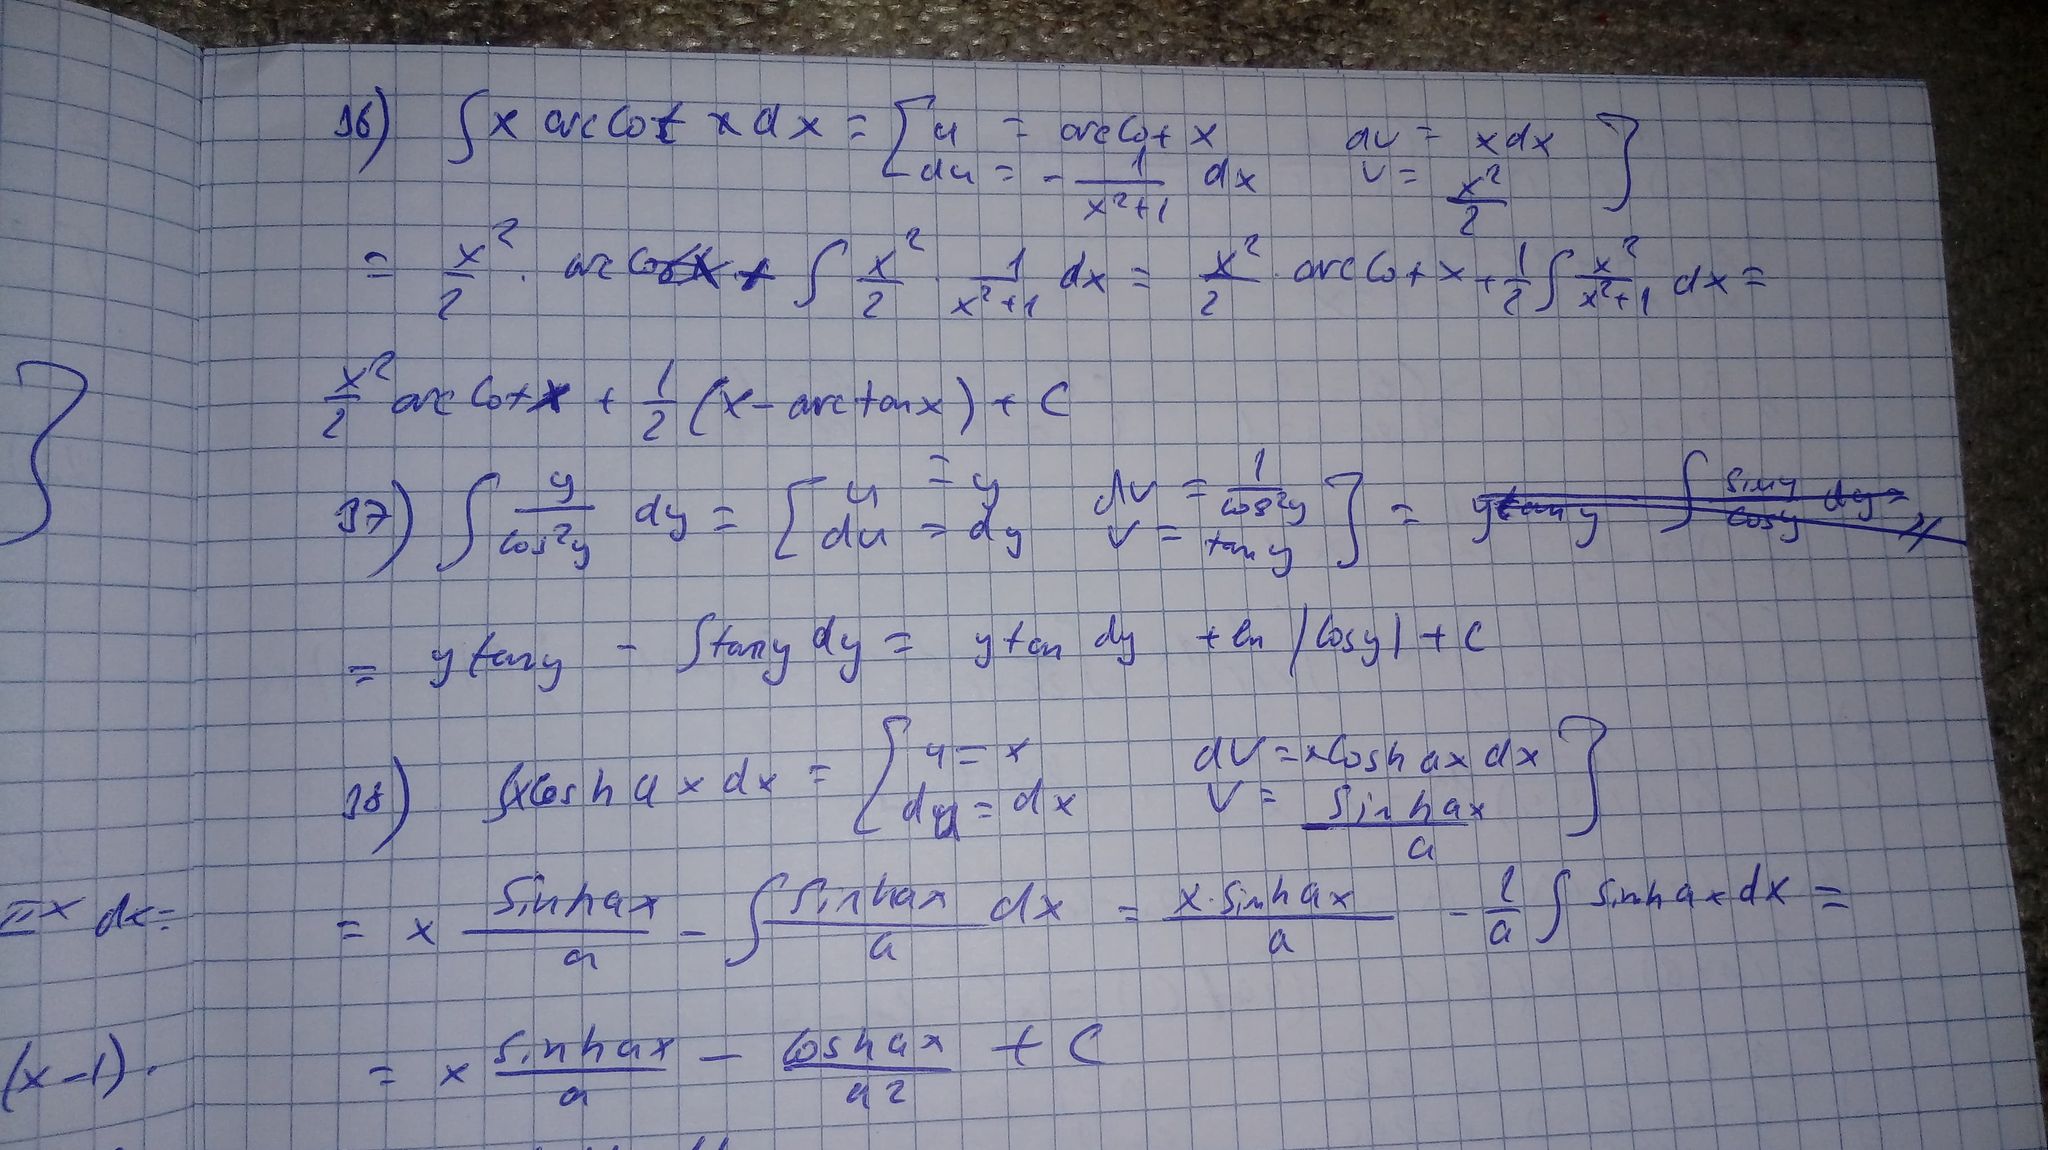 16) ∫ x arccot x dx = [ u = arccot x   dv = x dx ]
du = - 1/(x²+1) dx   v = x²/2
= x²/2 · arccot x + ∫ x²/2 · 1/(x²+1) dx = x²/2 · arccot x + 1/2 ∫ x²/(x²+1) dx =
x²/2 arccot x + 1/2 (x - arctan x) + C
17) ∫ y/cos²y dy = [ u = y   dv = 1/cos²y ] = y tan y ∫ sin y/cos y dy =
du = dy   v = tan y
= y tan y - ∫ tan y dy = y tan dy + ln |cos y| + C
18) ∫ x cosh ax dx = [ u = x   dv = x cosh ax dx ]
du = dx   v = sinh ax/a
πx dx = 
= x sinh ax/a - ∫ sinh ax/a dx = x · sinh ax/a - 1/a ∫ sinh ax dx =
(x-1) ·
= x sinh ax/a - cosh ax/a2 + C